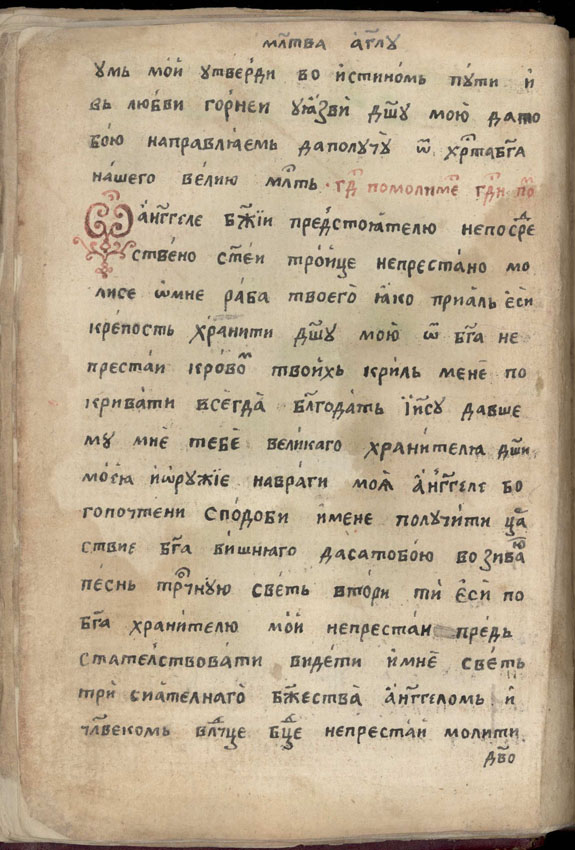 мл҃тва а҆гг҃лу
умь мо́й утве́рди во и҆стиномь пути̑ и҆
вь любви го́рнеи ую҆зви̑ дш҃у мою̀ да то
бо́ю направлꙗ́емь да полу́чу̀ ѿ хрⷭ҇та бг҃а
на́шего ве́лию мл҃ть · гдⷭ҇ꙋ помолимсе
а́нг҃геле бж҃їи предстоꙗ́телю непосре́
ствено ст҃е́и тро́йце непреста́но мо
лисе ѡ҆ мне ра́ба твоего̀ ꙗ҆ко приꙗль е҆си
кре́пость храни́ти дш҃у мою̀ ѿ бг҃а не
преста́и кро́вѡⷨ твои́хь кри́ль мене̑ по
крива́ти всегда̀ бл҃года́ть і҆и҃су давше
му мне̑ тебе̑ вели́каго храни́телꙗ дш҃и
мое́ꙗ и҆ ѡ҆ру́жїе на вра́ги моꙗ̀ а́нг҃геле бо
гопочте́ни спо́доби и҆мене получи́ти цⷬ҇а
ствие бг҃а ви́шнꙗго да са тобо́ю во зива́ю
пе́снь трⷪ҇чную све́ть вто́ри ти̑ е҆си̑ по
бг҃а храни́телю мо́й непреста́и пре́дь
стателствова́ти виде́ти и҆ мне̑ све́ть
три̑ сиꙗ́телнаго̀ бж҃ества̀ а́нг҃геломь и҆
чл҃векомь вл҃чце бц҃е непреста́й моли́ти
дв҃о